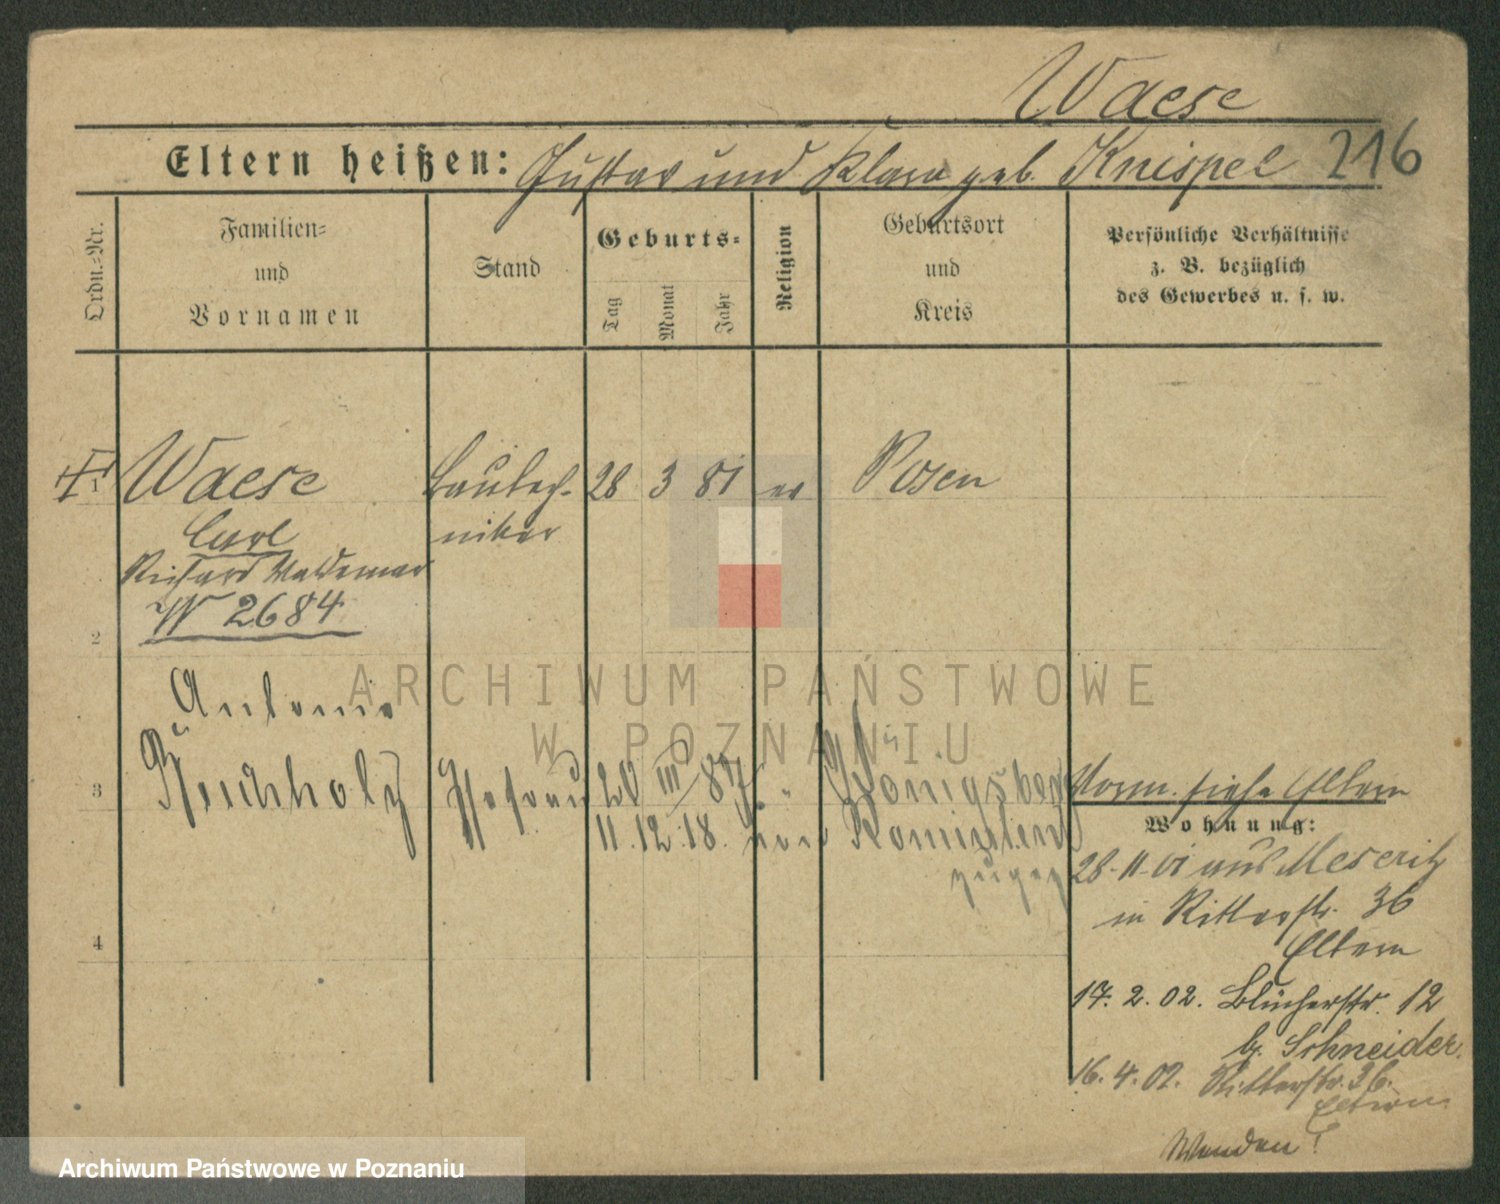 Waese
Eltern heißen: Gustav und Klara geb. Knispel 216
Ordn.-Nr.
Familien-
und
Vornamen
Stand
Geburts-
Tag
Monat
Jahr
Religion
Geburtsort
und
Kreis
Persönliche Verhältnisse
z. B. bezüglich
des Gewerbes u. s. w.
1 Waese Bautech- 28 3 81 ev Posen
Carl niker
Richard Waldemar
W 2684
2
Antonie
3 Buchholz Ehefrau 20 III 87 Königsberg
11. 12. 18. von
zugez
Vorm. siehe Eltern
Wohnung:
28. 11. 01 aus Meseritz
in Ritterstr. 36
Eltern
4
17. 2. 02. Blücherstr. 12
b. Schneider.
16. 4. 02. Ritterstr. 36.
Eltern
Wenden!
ARCHIWUM PAŃSTWOWE
W POZNANIU
Archiwum Państwowe w Poznaniu